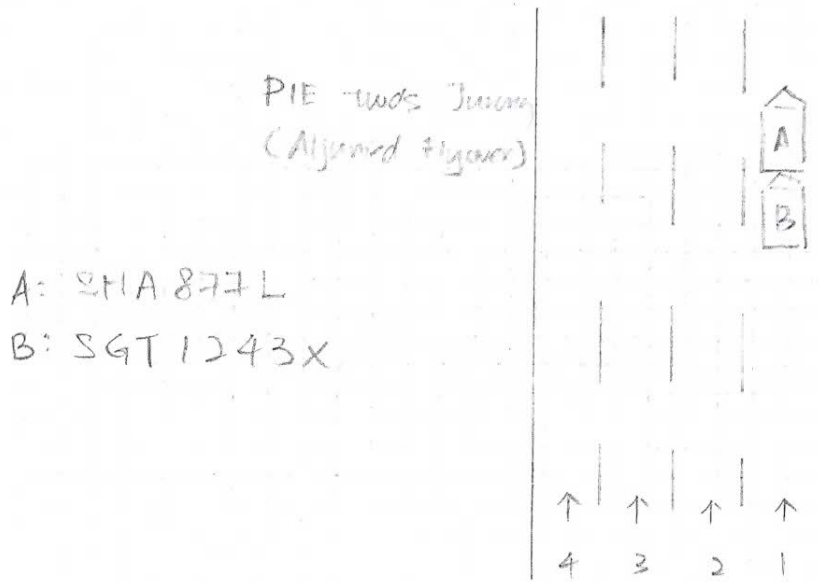 PIE twds Jurong
(Aljunied Flyover)
A
B
A: SHA 877L
B: SGT 1243X
4 3 2 1